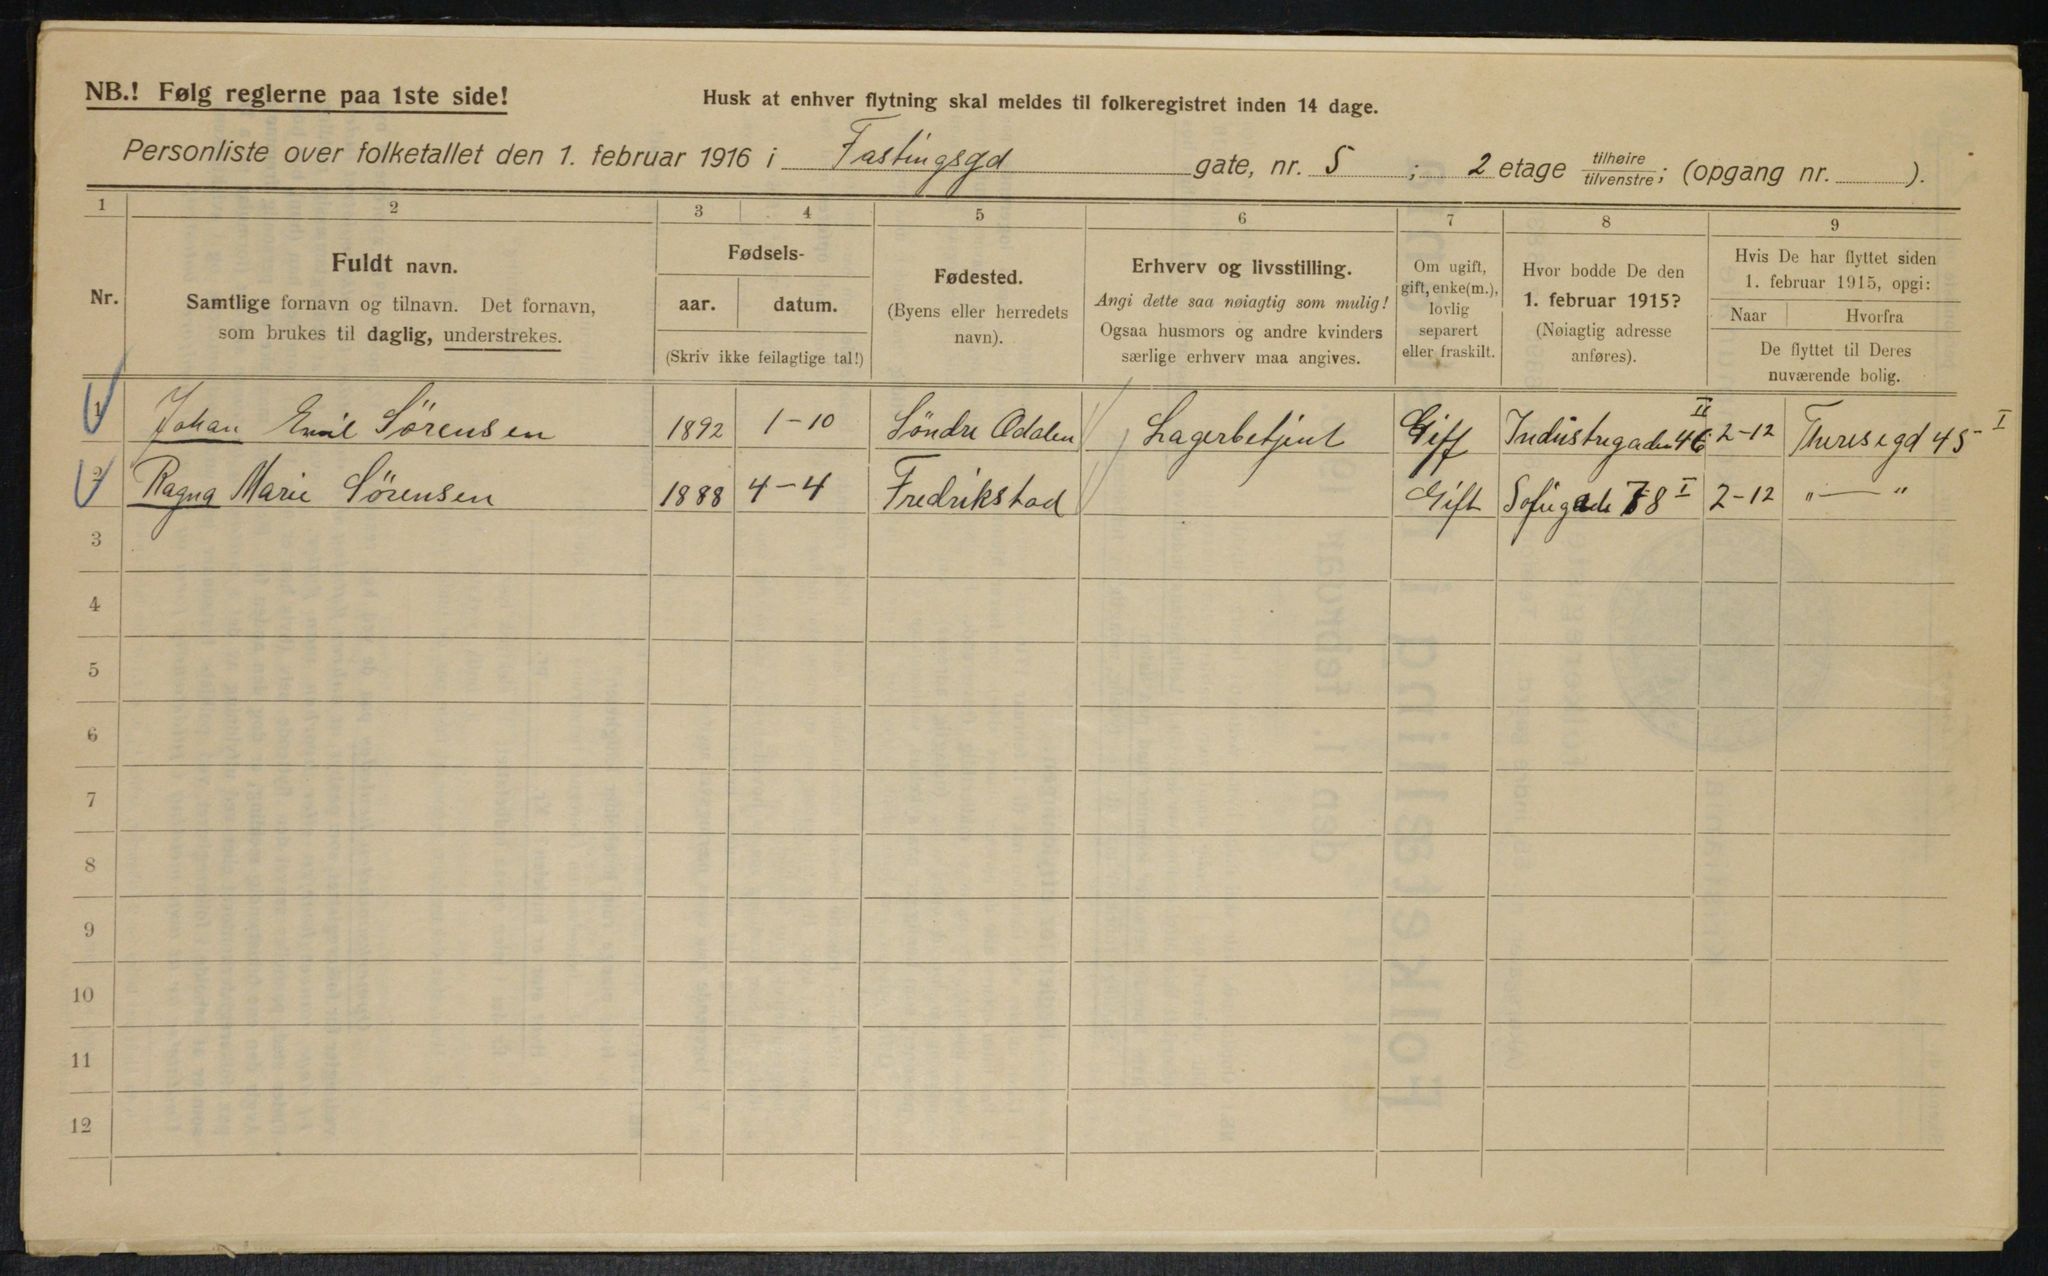 NB.! Følg reglerne paa 1ste side!
Husk at enhver flytning skal meldes til folkeregistret inden 14 dage.
Personliste over folketallet den 1. februar 1916 i Fastingsgd gate, nr. 5 ; 2 etage tilhøire/tilvenstre; (opgang nr. ).
1 2 3 4 5 6 7 8 9
Nr.
Fuldt navn.
Samtlige fornavn og tilnavn. Det fornavn,
som brukes til daglig, understrekes.
Fødsels-
aar. datum.
(Skriv ikke feilagtige tal!)
Fødested.
(Byens eller herredets
navn).
Erhverv og livsstilling.
Angi dette saa nøiagtig som mulig!
Ogsaa husmors og andre kvinders
særlige erhverv maa angives.
Om ugift,
gift, enke(m.),
lovlig
separert
eller fraskilt.
Hvor bodde De den
1. februar 1915?
(Nøiagtig adresse
anføres).
Hvis De har flyttet siden
1. februar 1915, opgi:
Naar Hvorfra
De flyttet til Deres
nuværende bolig.
1 Johan Emil Sörensen 1892 1-10 Söndre Odalen Lagerbetjent Gift Industrigaden 46 II 2-12 Theresegd 45 I
2 Ragna Marie Sørensen 1888 4-4 Fredrikstad Gift Sofiegade 78 I 2-12 " — "
3
4
5
6
7
8
9
10
11
12